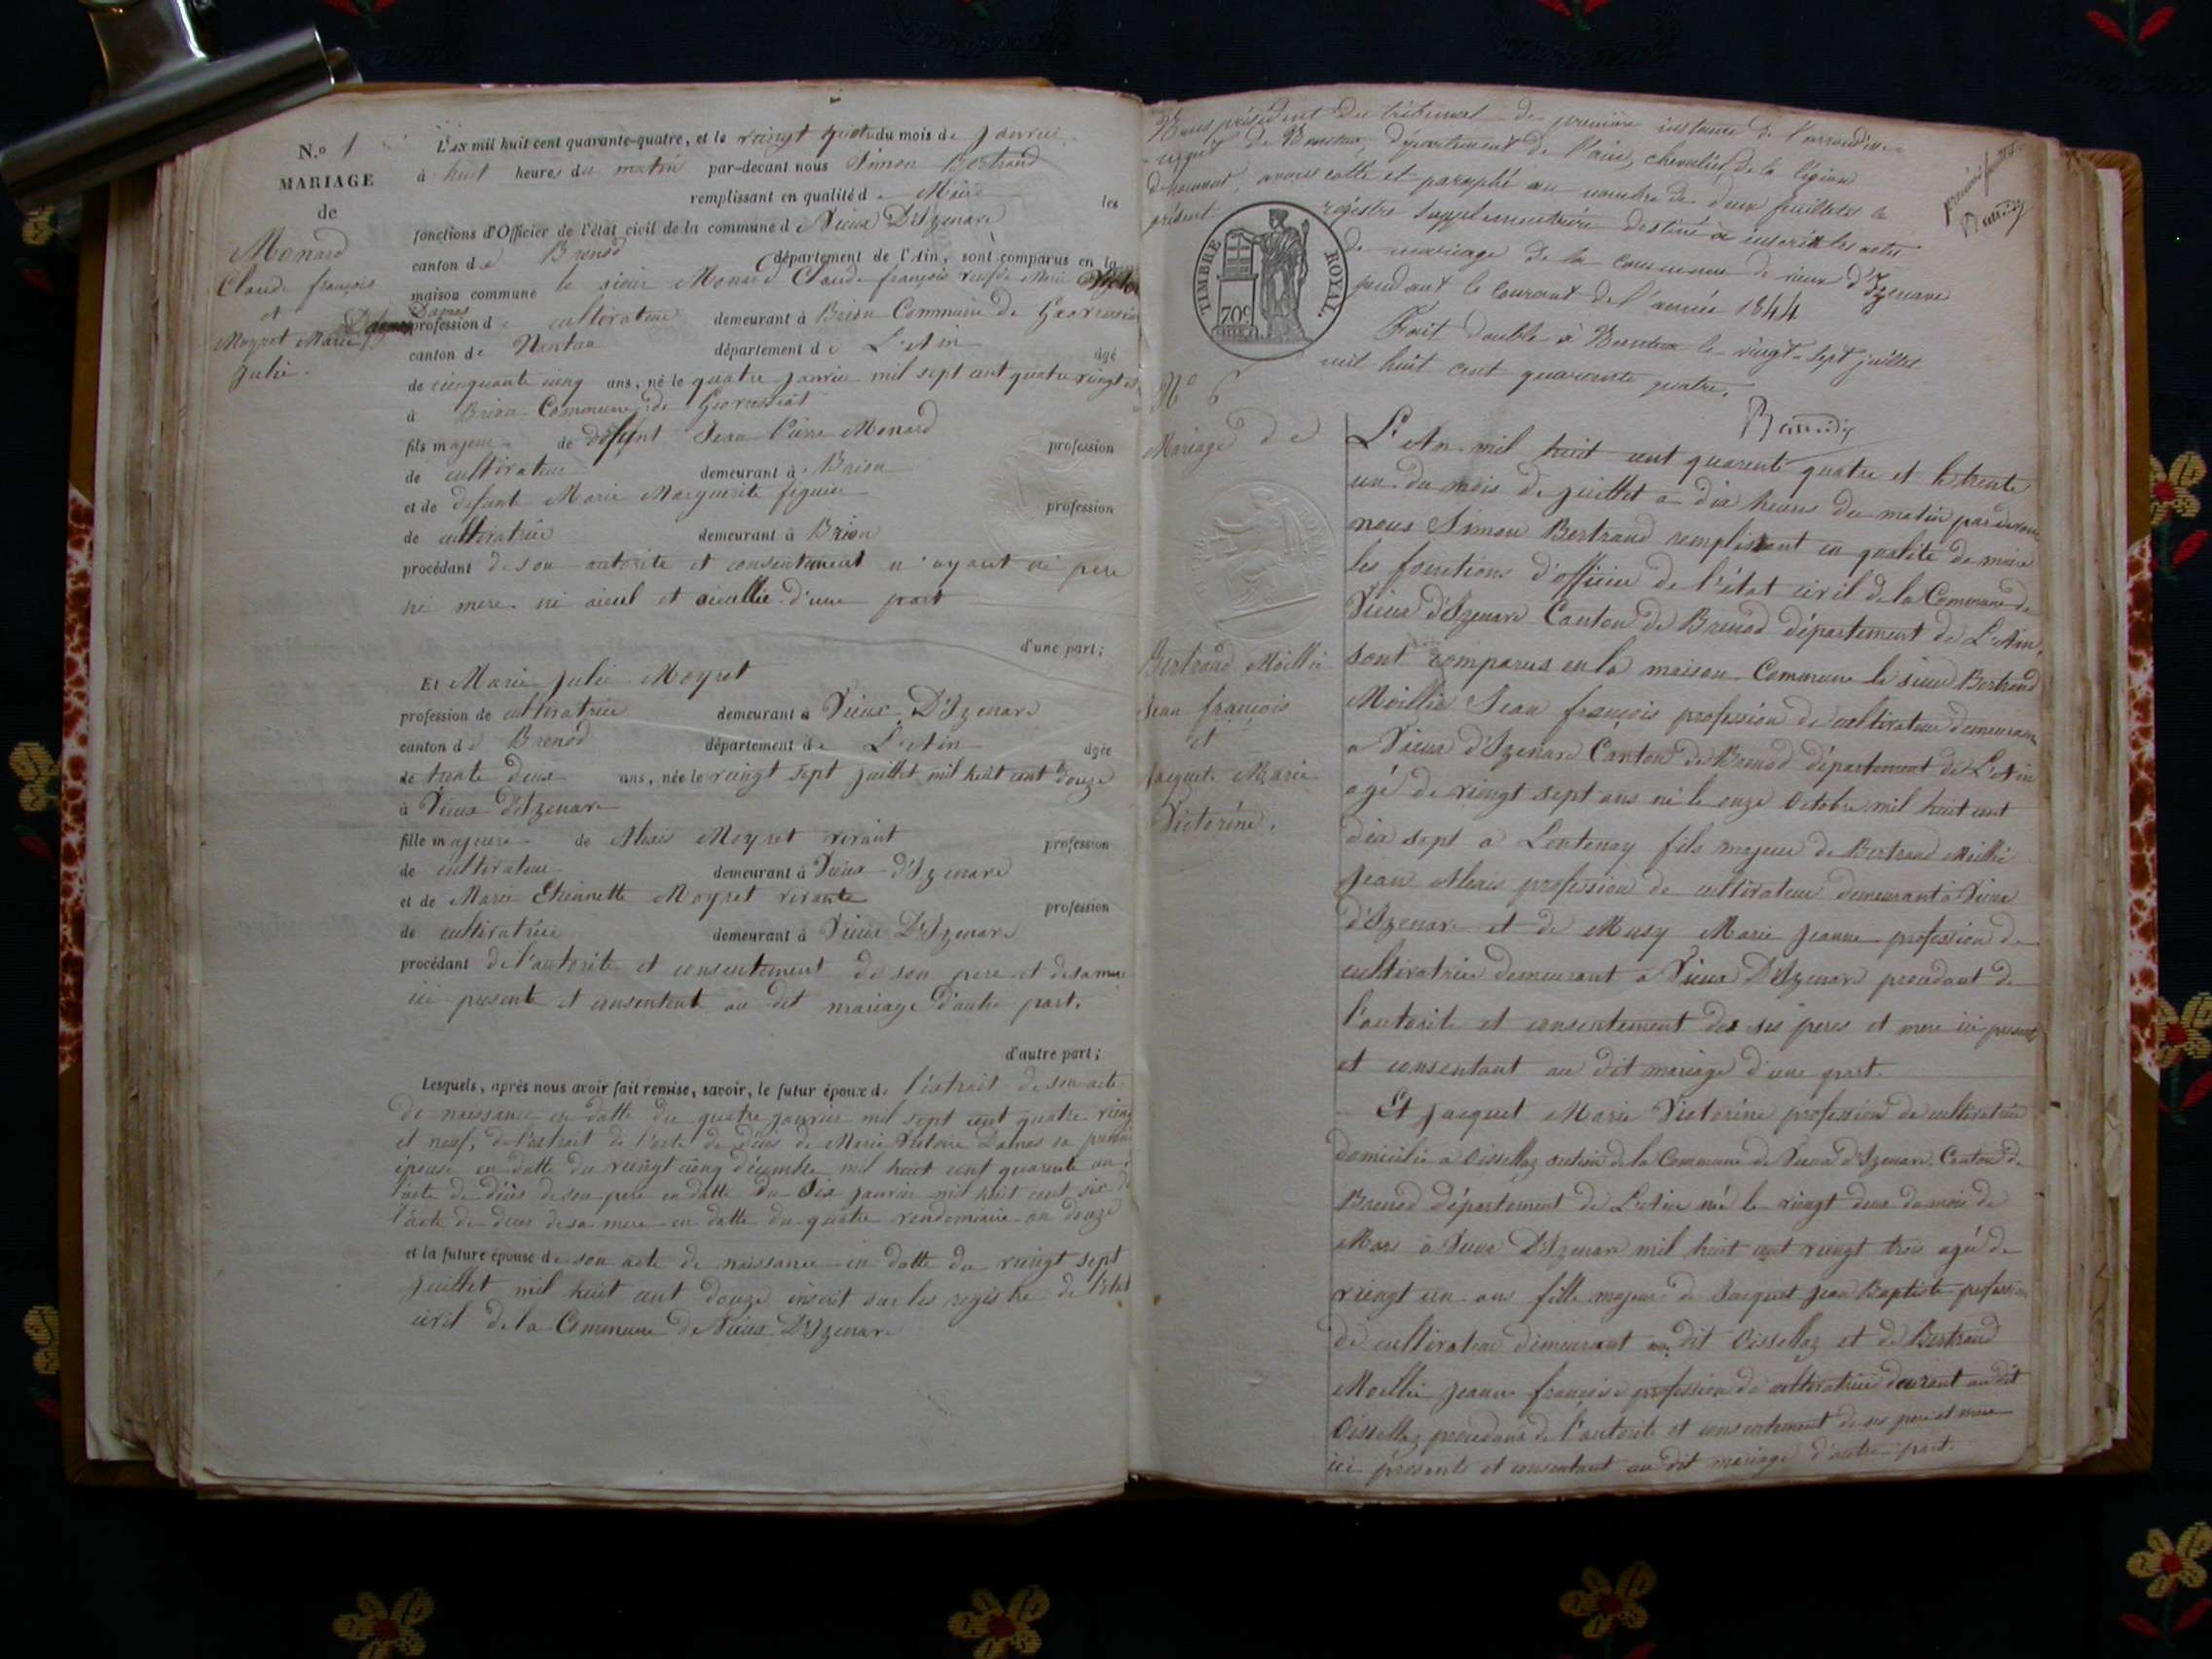 N.o 1
MARIAGE
de
Monard
Claude françois
et
Moyret Marie
Julie.
L'an mil huit cent quarante-quatre, et le vingt huit du mois de Janvier
à huit heures du matin par-devant nous Simon Bertrand
remplissant en qualité de Maire les
fonctions d'Officier de l'état civil de la commune de Vieux D'Izenave
canton de Brenod département de l'Ain, sont comparus en la
maison commune le sieur Monard Claude françois veuf de Marie
Damas
profession de cultivateur demeurant à Brion Commune de Géovressiat
canton de Nantua département de L'Ain âgé
de cinquante cinq ans, né le quatre janvier mil sept cent quatre vingt
à Brion Commune de Géovressiat
fils majeur de défunt Jean Pierre Monard profession
de cultivateur demeurant à Brion
et de défunte Marie Marguerite figuier profession
de cultivatrice demeurant à Brion
procédant de son autorité et consentement n'ayant ni pere
ni mere ni aieul et aieullie d'une part
d'une part;
Et Marie Julie Moyret
profession de cultivatrice demeurant à Vieux D'Izenave
canton de Brenod département de L'Ain âgée
de trente deux ans, née le vingt sept juillet mil huit cent douze
à Vieux d'Izenave
fille majeure de Alexis Moyret vivant profession
de cultivateur demeurant à Vieux d'Izenave
et de Marie Etiennette Moyret vivante profession
de cultivatrice demeurant à Vieux D'Izenave
procédant de l'autorité et consentement de son pere et de sa mere
ici presente et consentent au dit mariage d'autre part.
d'autre part;
Lesquels, après nous avoir fait remise, savoir, le futur époux de l'extrait de son acte
de naissance en datte du quatre janvier mil sept cent quatre vingt
et neuf, de l'extrait de l'acte de décès de Marie Victoire Damas sa
épouse en datte du vingt cinq décembre mil huit cent quarante un
l'acte de décès de son pere en datte du six janvier mil huit cent six
l'acte de deces de sa mere en datte du quatre vendemiaire an douze
et la future épouse de son acte de naissance en datte du vingt sept
juillet mil huit cent douze inscrit sur les registre de l'état
civil de la Commune de Vieux D'Izenave
Nous président du tribunal de première instance de l'arrondisse-
de Nantua, département de l'ain, chevalier de la légion
d'honneur, avons cotté et paraphé au nombre de deux feuillets le
présent registre supplémentaire destiné à inscrire les actes
de mariage de la commune de vieux d'Izenave
pendant le courant de l'année 1844
Fait double à Nantua le vingt-sept juillet
mil huit cent quarante quatre.
TIMBRE ROYAL.
70c
No 6
Mariage de
Bertrand Moillie
Jean françois
et
Jacquet Marie
Victorine.
L'An mil huit cent quarente quatre et le trente
un du mois de juillet a dix heures du matin par devant
nous Simon Bertrand remplissant en qualité de maire
les fonctions d'officier de l'état civil de la Commune de
Vieux d'Izenave Canton de Brenod département de L'Ain,
sont comparus en la maison Commune le sieur Bertrand
Moillie Jean françois profession de cultivateur demeurant
a Vieux d'Izenave Canton de Brenod département de L'Ain
agé de vingt sept ans né le onze Octobre mil huit cent
dix sept a Lentenay fils majeur de Bertrand Moillie
Jean Alexis profession de cultivateur demeurant a Vieux
d'Izenave et de Musy Marie Jeanne profession de
cultivatrice demeurant a Vieux D'Izenave procedant de
l'autorité et consentement des ses peres et mere ici present
et consentant au dit mariage d'une part.
Et Jacquet Marie Victorine profession de cultivatrice
domicilié a Oissellaz section de la Commune de Vieux d'Izenave Canton de
Brenod département de L'Ain né le vingt deux du mois de
Mars a Vieux D'Izenave mil huit cent vingt trois agée de
vingt un ans fille majeur de Jacquet Jean Baptiste profession
de cultivateur demeurant au dit Oissellaz et de Bertrand
Moillie Jeanne françoise profession de cultivatrice demeurant au dit
Oissellaz procedant de l'autorité et consentement de ses pere et mere
ici présents et consentant au dit mariage d'autre part.